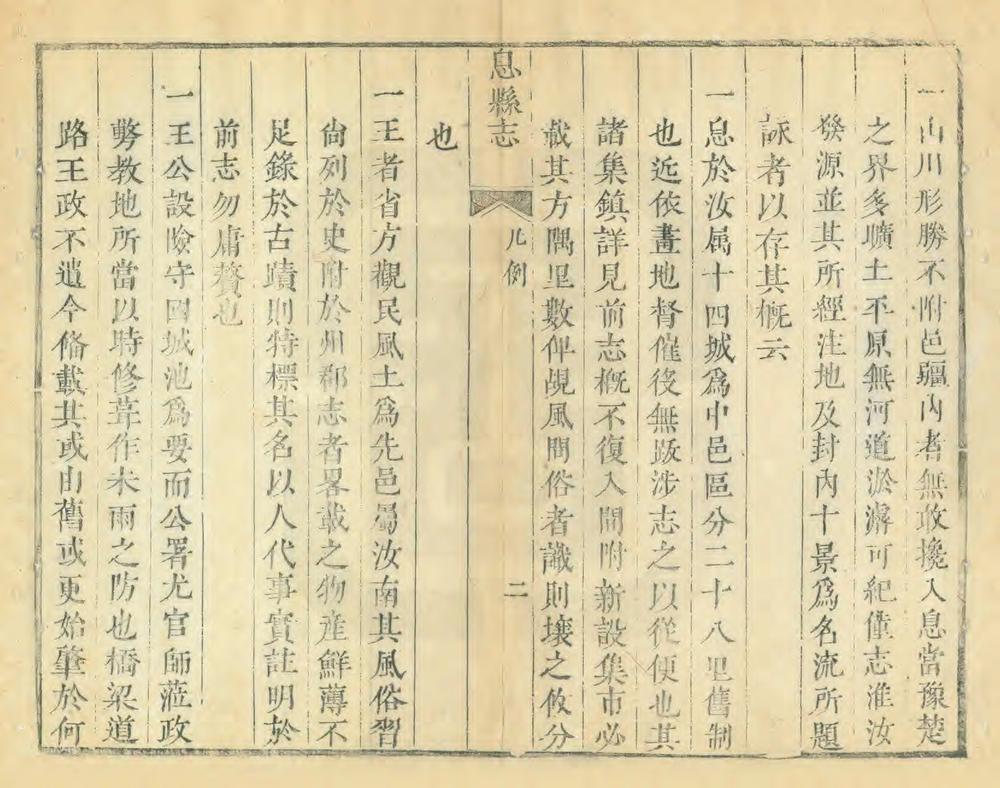 一山川形勝不附邑疆內者無敢攙入息當豫楚
之界多曠土平原無河道淤濬可紀僅志淮汝
發源並其所經注地及封內十景爲名流所題
詠者以存其槪云
一息於汝属十四城爲中邑區分二十八里舊制
也近依畫地督催後無跋涉志之以從便也其
諸集鎮詳見前志槪不復入間附新設集市必
載其方隅里數俾覘風問俗者識則壤之攸分
也
息縣志
凡例
二
一王者省方觀民風土爲先邑屬汝南其風俗習
尙列於史附於州郡志者畧載之物產鮮薄不
足錄於古蹟則特標其名以人代事實註明於
前志勿庸贅也
一王公設險守固城池爲要而公署尤官師蒞政
勞教地所當以時修葺作未雨之防也橋梁道
路王政不遺今俻載其或由舊或更始肇於何